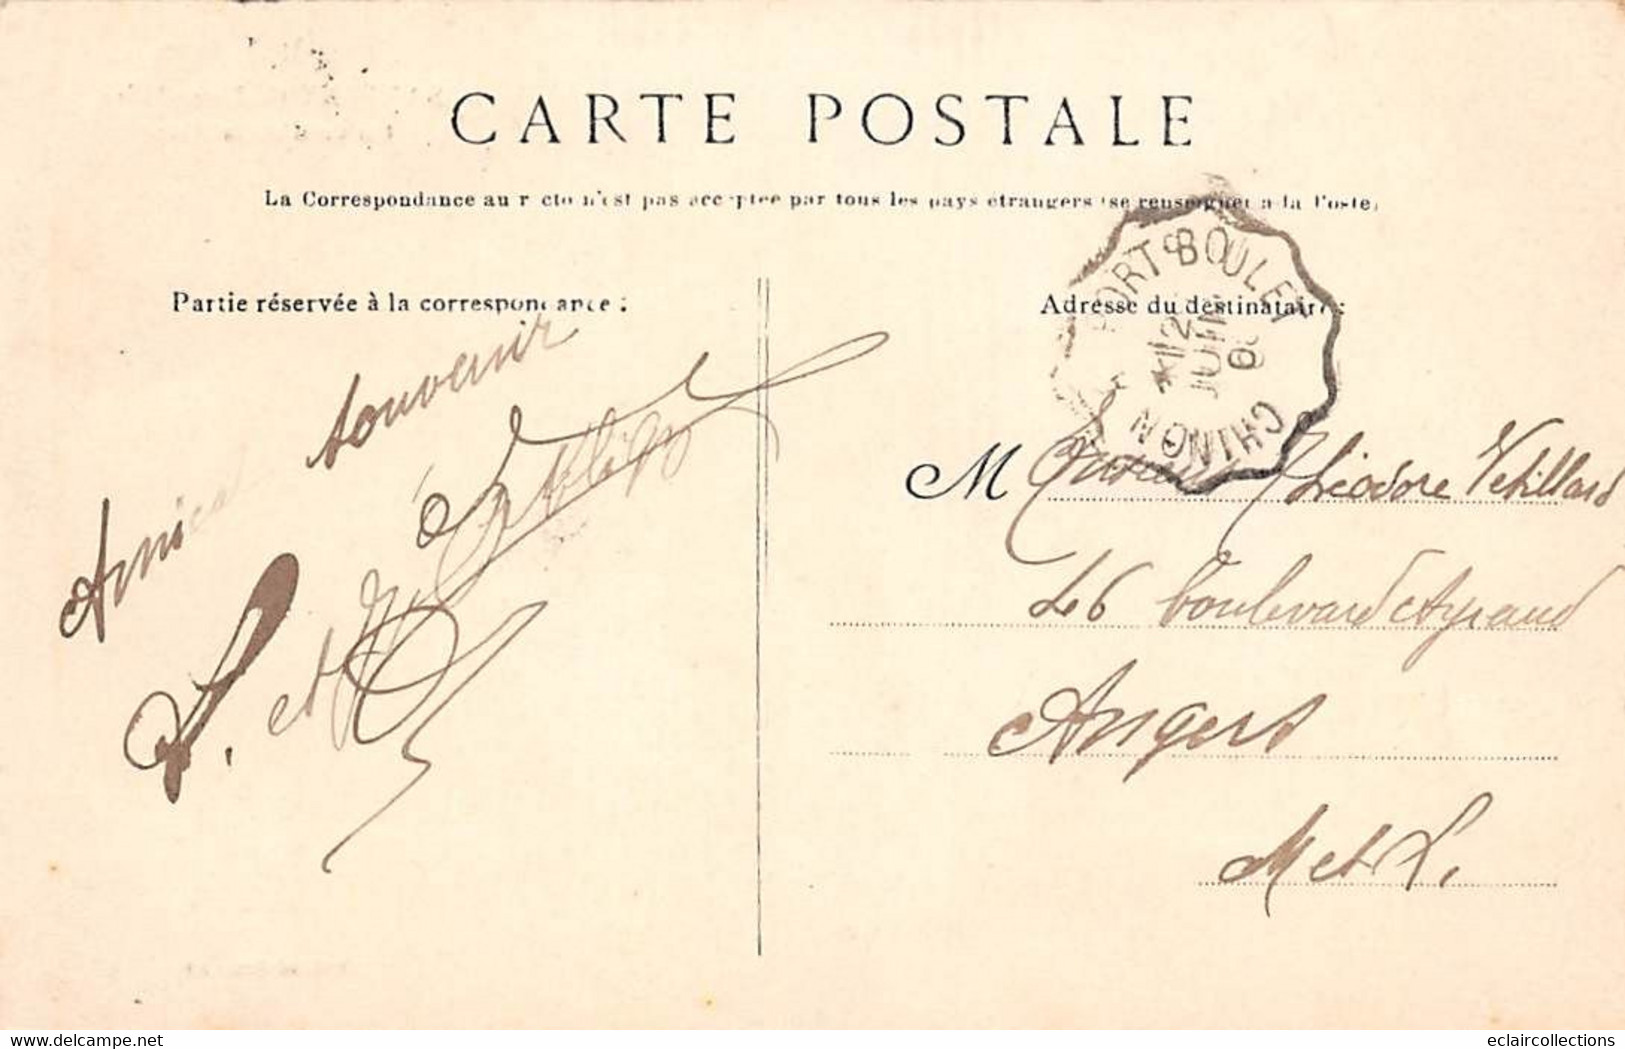 CARTE POSTALE
La Correspondance au recto n'est pas acceptée par tous les pays étrangers (se renseigner à la Poste)
Partie réservée à la correspondance :
Adresse du destinataire :
PORT-BOULET
12
JUIN
CHINON
Amical souvenir
et
M Théodore Vétillard
46 boulevard Ayraud
Angers
M et L.
delcampe.net
eclaircollections